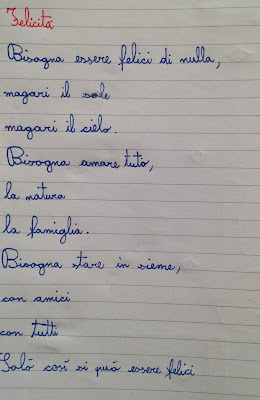 Felicità
Bisogna essere felici di nulla,
magari il sole
magari il cielo.
Bisogna amare tuto,
la natura
la famiglia.
Bisogna stare in sieme,
con amici
con tutti
Solo così si può essere felici